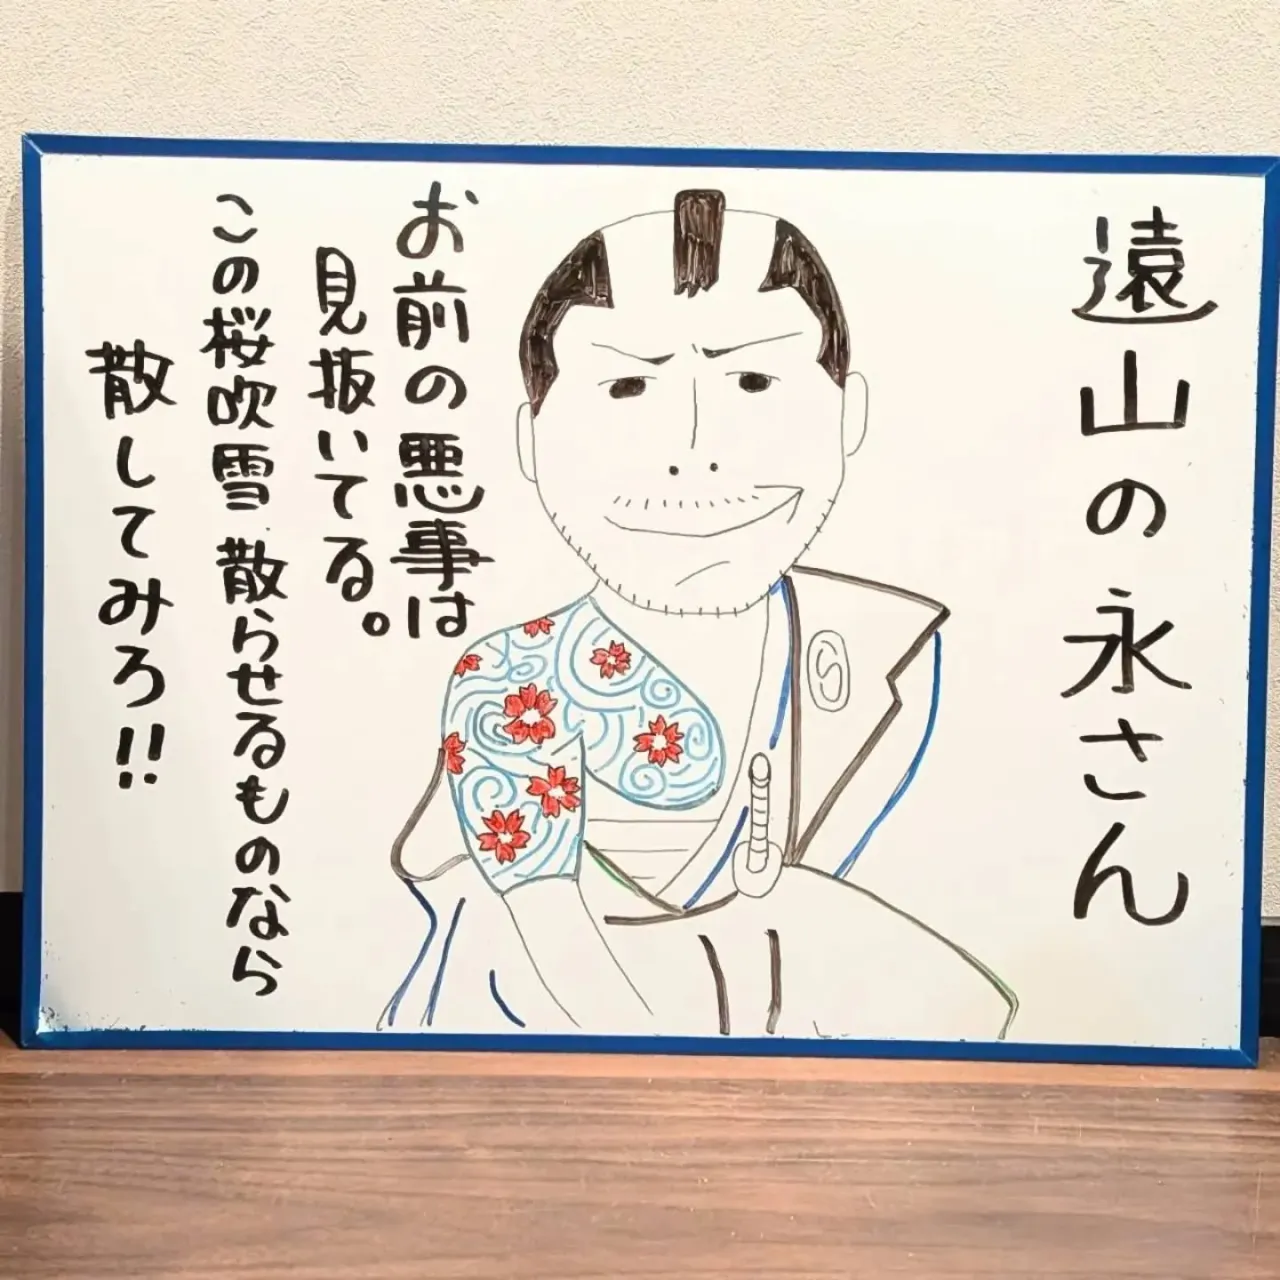 遠山の永さん
お前の悪事は
見抜いてる。
この桜吹雪 散らせるものなら
散してみろ!!